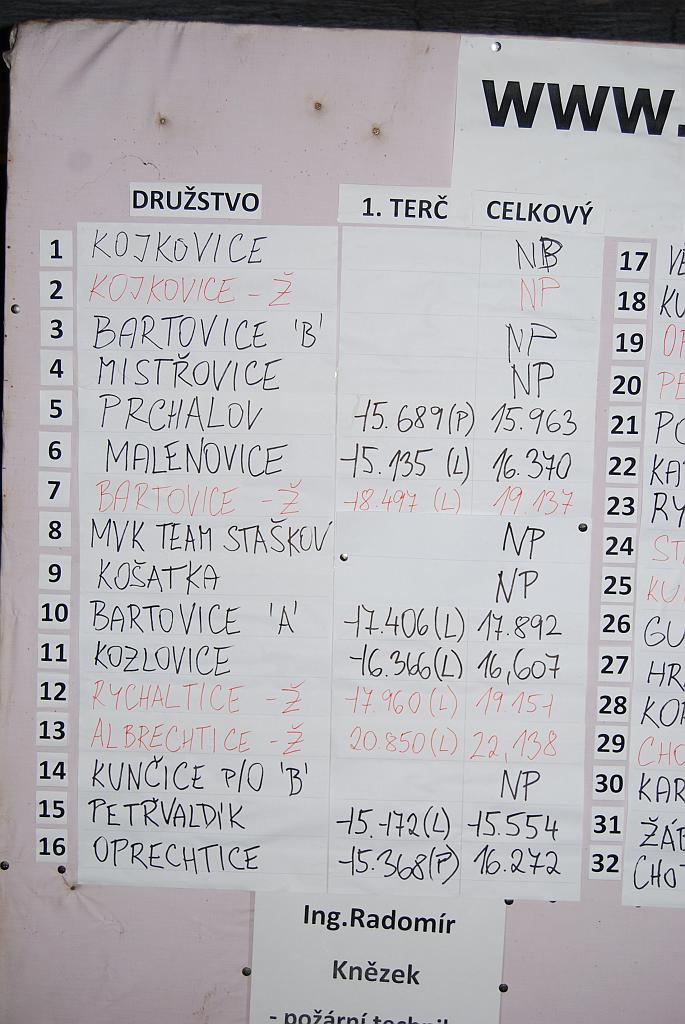 www.
DRUŽSTVO 1. TERČ CELKOVÝ
1 KOJKOVICE NP 17
2 KOJKOVICE - Ž NP 18 KU
3 BARTOVICE 'B' NP 19
4 MISTŘOVICE NP 20 PE
5 PRCHALOV 15.689 (P) 15.963 21
6 MALENOVICE 15.135 (L) 16.370 22 KA
7 BARTOVICE - Ž 18.497 (L) 19.137 23 RY
8 MVK TEAM STAŠKOV NP 24 ST
9 KOŠATKA NP 25 KU
10 BARTOVICE 'A' 17.406 (L) 17.892 26 GU
11 KOZLOVICE 16.366 (L) 16,607 27 HR
12 RYCHALTICE - Ž 17.960 (L) 19.151 28 KO
13 ALBRECHTICE - Ž 20.850 (L) 22,138 29 CHO
14 KUNČICE P/O 'B' NP 30 KAR
15 PETŘVALDÍK 15.172 (L) 15.554 31 ŽÁ
16 OPRECHTICE 15.368 (P) 16.272 32 CHO
Ing.Radomír
Knězek
- požární